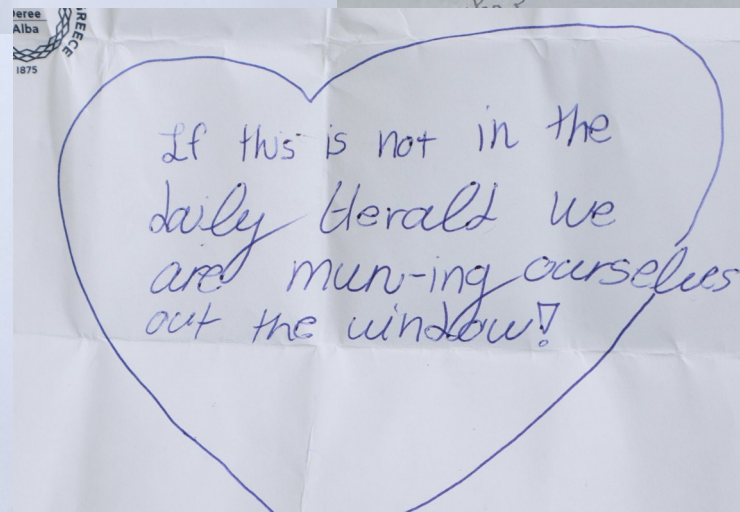 Deree
Alba
GREECE
1875
If this is not in the
daily Herald we
are mun-ing ourselves
out the window!